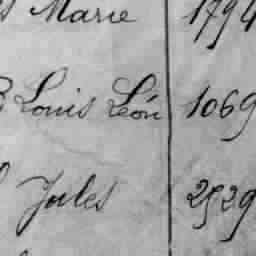 Marie 1794
Louis Léon 1069
Jules 2529